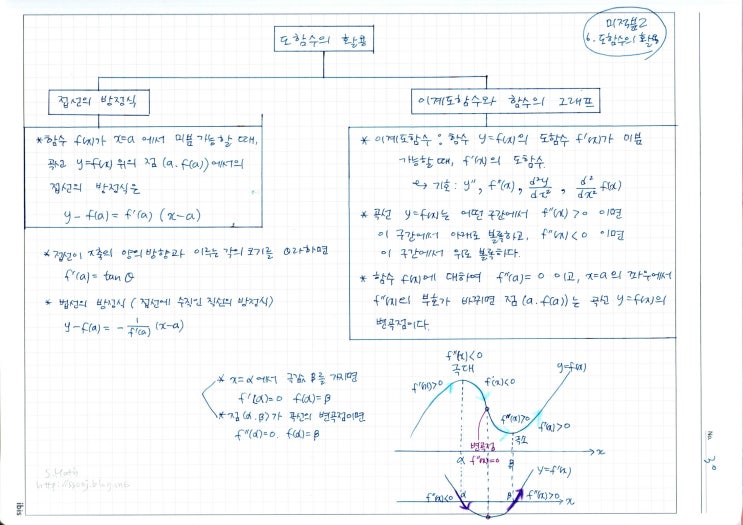 미적분2
6. 도함수의 활용
도함수의 활용
접선의 방정식
* 함수 f(x)가 x=a 에서 미분가능할 때,
곡선 y=f(x) 위의 점 (a, f(a))에서의
접선의 방정식은
y-f(a) = f'(a) (x-a)
* 접선이 x축의 양의 방향과 이루는 각의 크기를 θ라하면
f'(a) = tan θ
* 법선의 방정식 (접선에 수직인 직선의 방정식)
y-f(a) = - 1/f'(a) (x-a)
이계도함수와 함수의 그래프
* 이계도함수 : 함수 y=f(x)의 도함수 f'(x)가 미분
가능할 때, f'(x)의 도함수.
↳ 기호 : y'', f''(x), d²y/dx², d²/dx² f(x)
* 곡선 y=f(x)는 어떤 구간에서 f''(x) > 0 이면
이 구간에서 아래로 볼록하고, f''(x) < 0 이면
이 구간에서 위로 볼록하다.
* 함수 f(x)에 대하여 f''(a) = 0 이고, x=a의 좌우에서
f''(x)의 부호가 바뀌면 점 (a, f(a))는 곡선 y=f(x)의
변곡점이다.
* x=α 에서 극값 β를 가지면
f'(α)=0 f(α)=β
* 점 (α, β)가 곡선의 변곡점이면
f''(α)=0. f(α)=β
f''(x)<0
극대
f'(x)>0
f'(x)<0
y=f(x)
f''(x)>0
f'(x)>0
극소
변곡점
f''(x)=0
α
β
x
y=f'(x)
f''(x)<0
α
β
f''(x)>0
x
S.Math
No.
3°
ibis